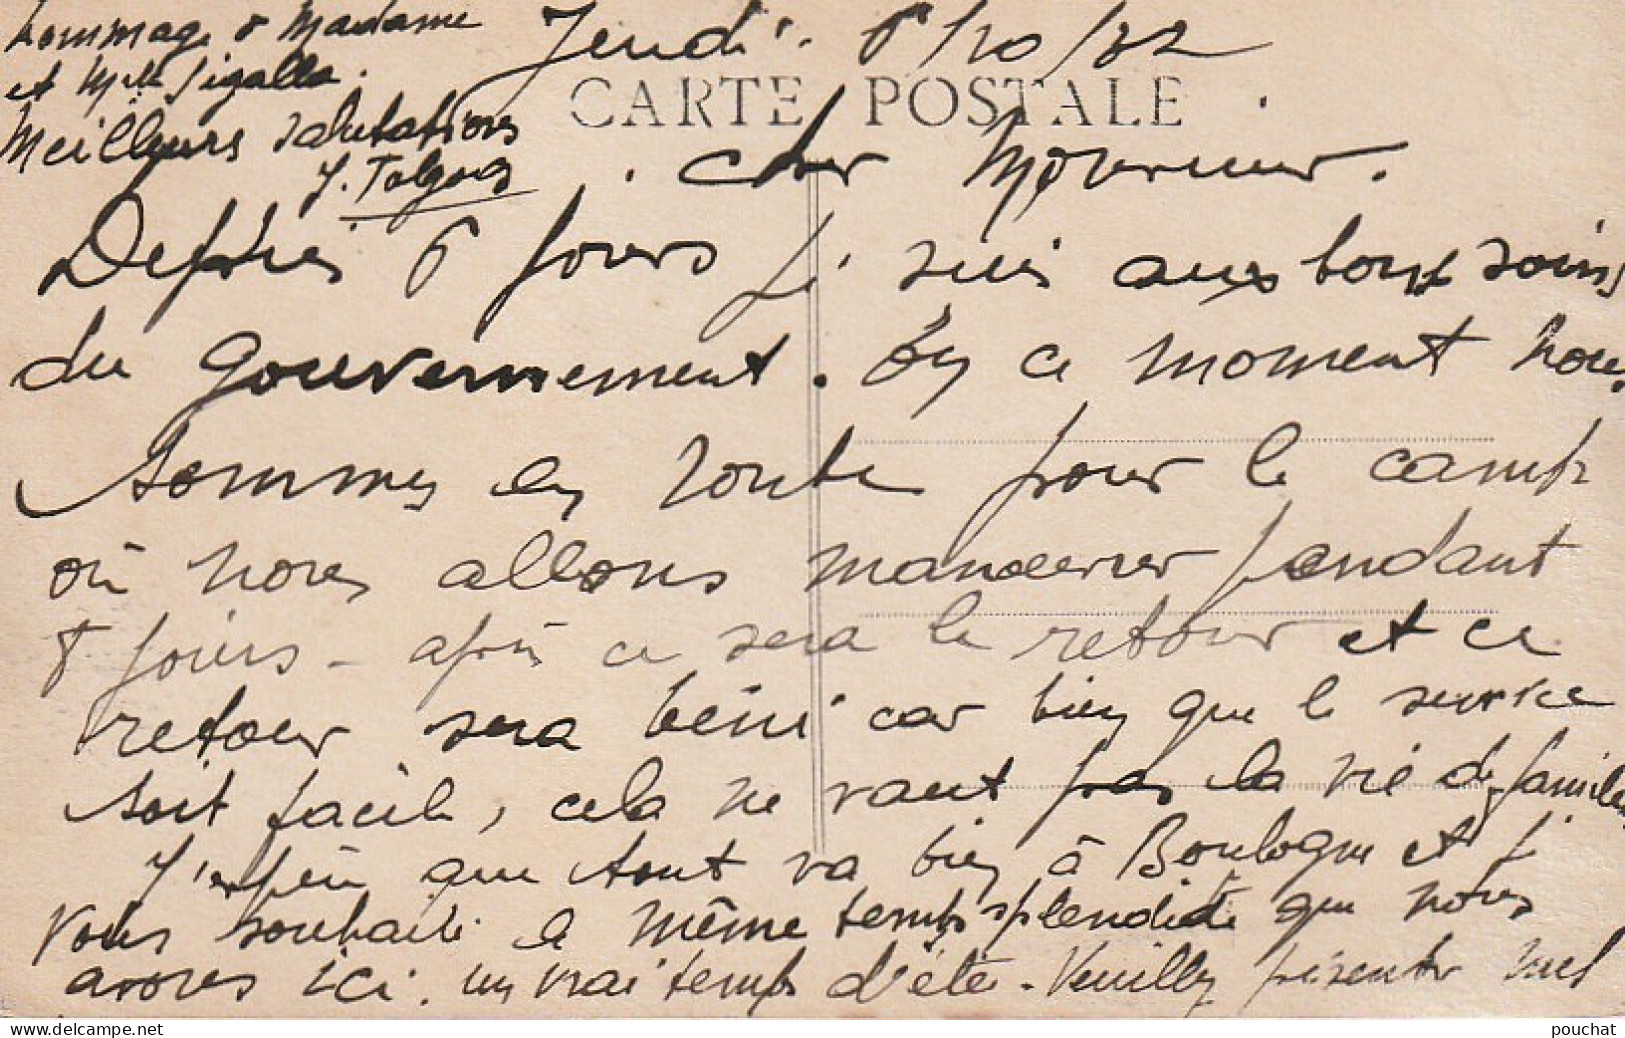 Jeudi. 6/10/32
CARTE POSTALE
Cher Monsieur.
Depuis 6 jours je suis aux bons soins
du gouvernement. En ce moment nous
sommes en route pour le camp
où nous allons manoeuvrer pendant
8 jours - après ce sera le retour et ce
retour sera béni car bien que le service
soit facile, cela ne vaut pas la vie de famille
J'espère que tout va bien à Boulogne et je
vous souhaite le même temps splendide que nous
avons ici. un vrai temps d'été. Veuillez présenter mes
hommages à Madame
et Mlle Sigalla.
Meilleurs salutations
pouchat